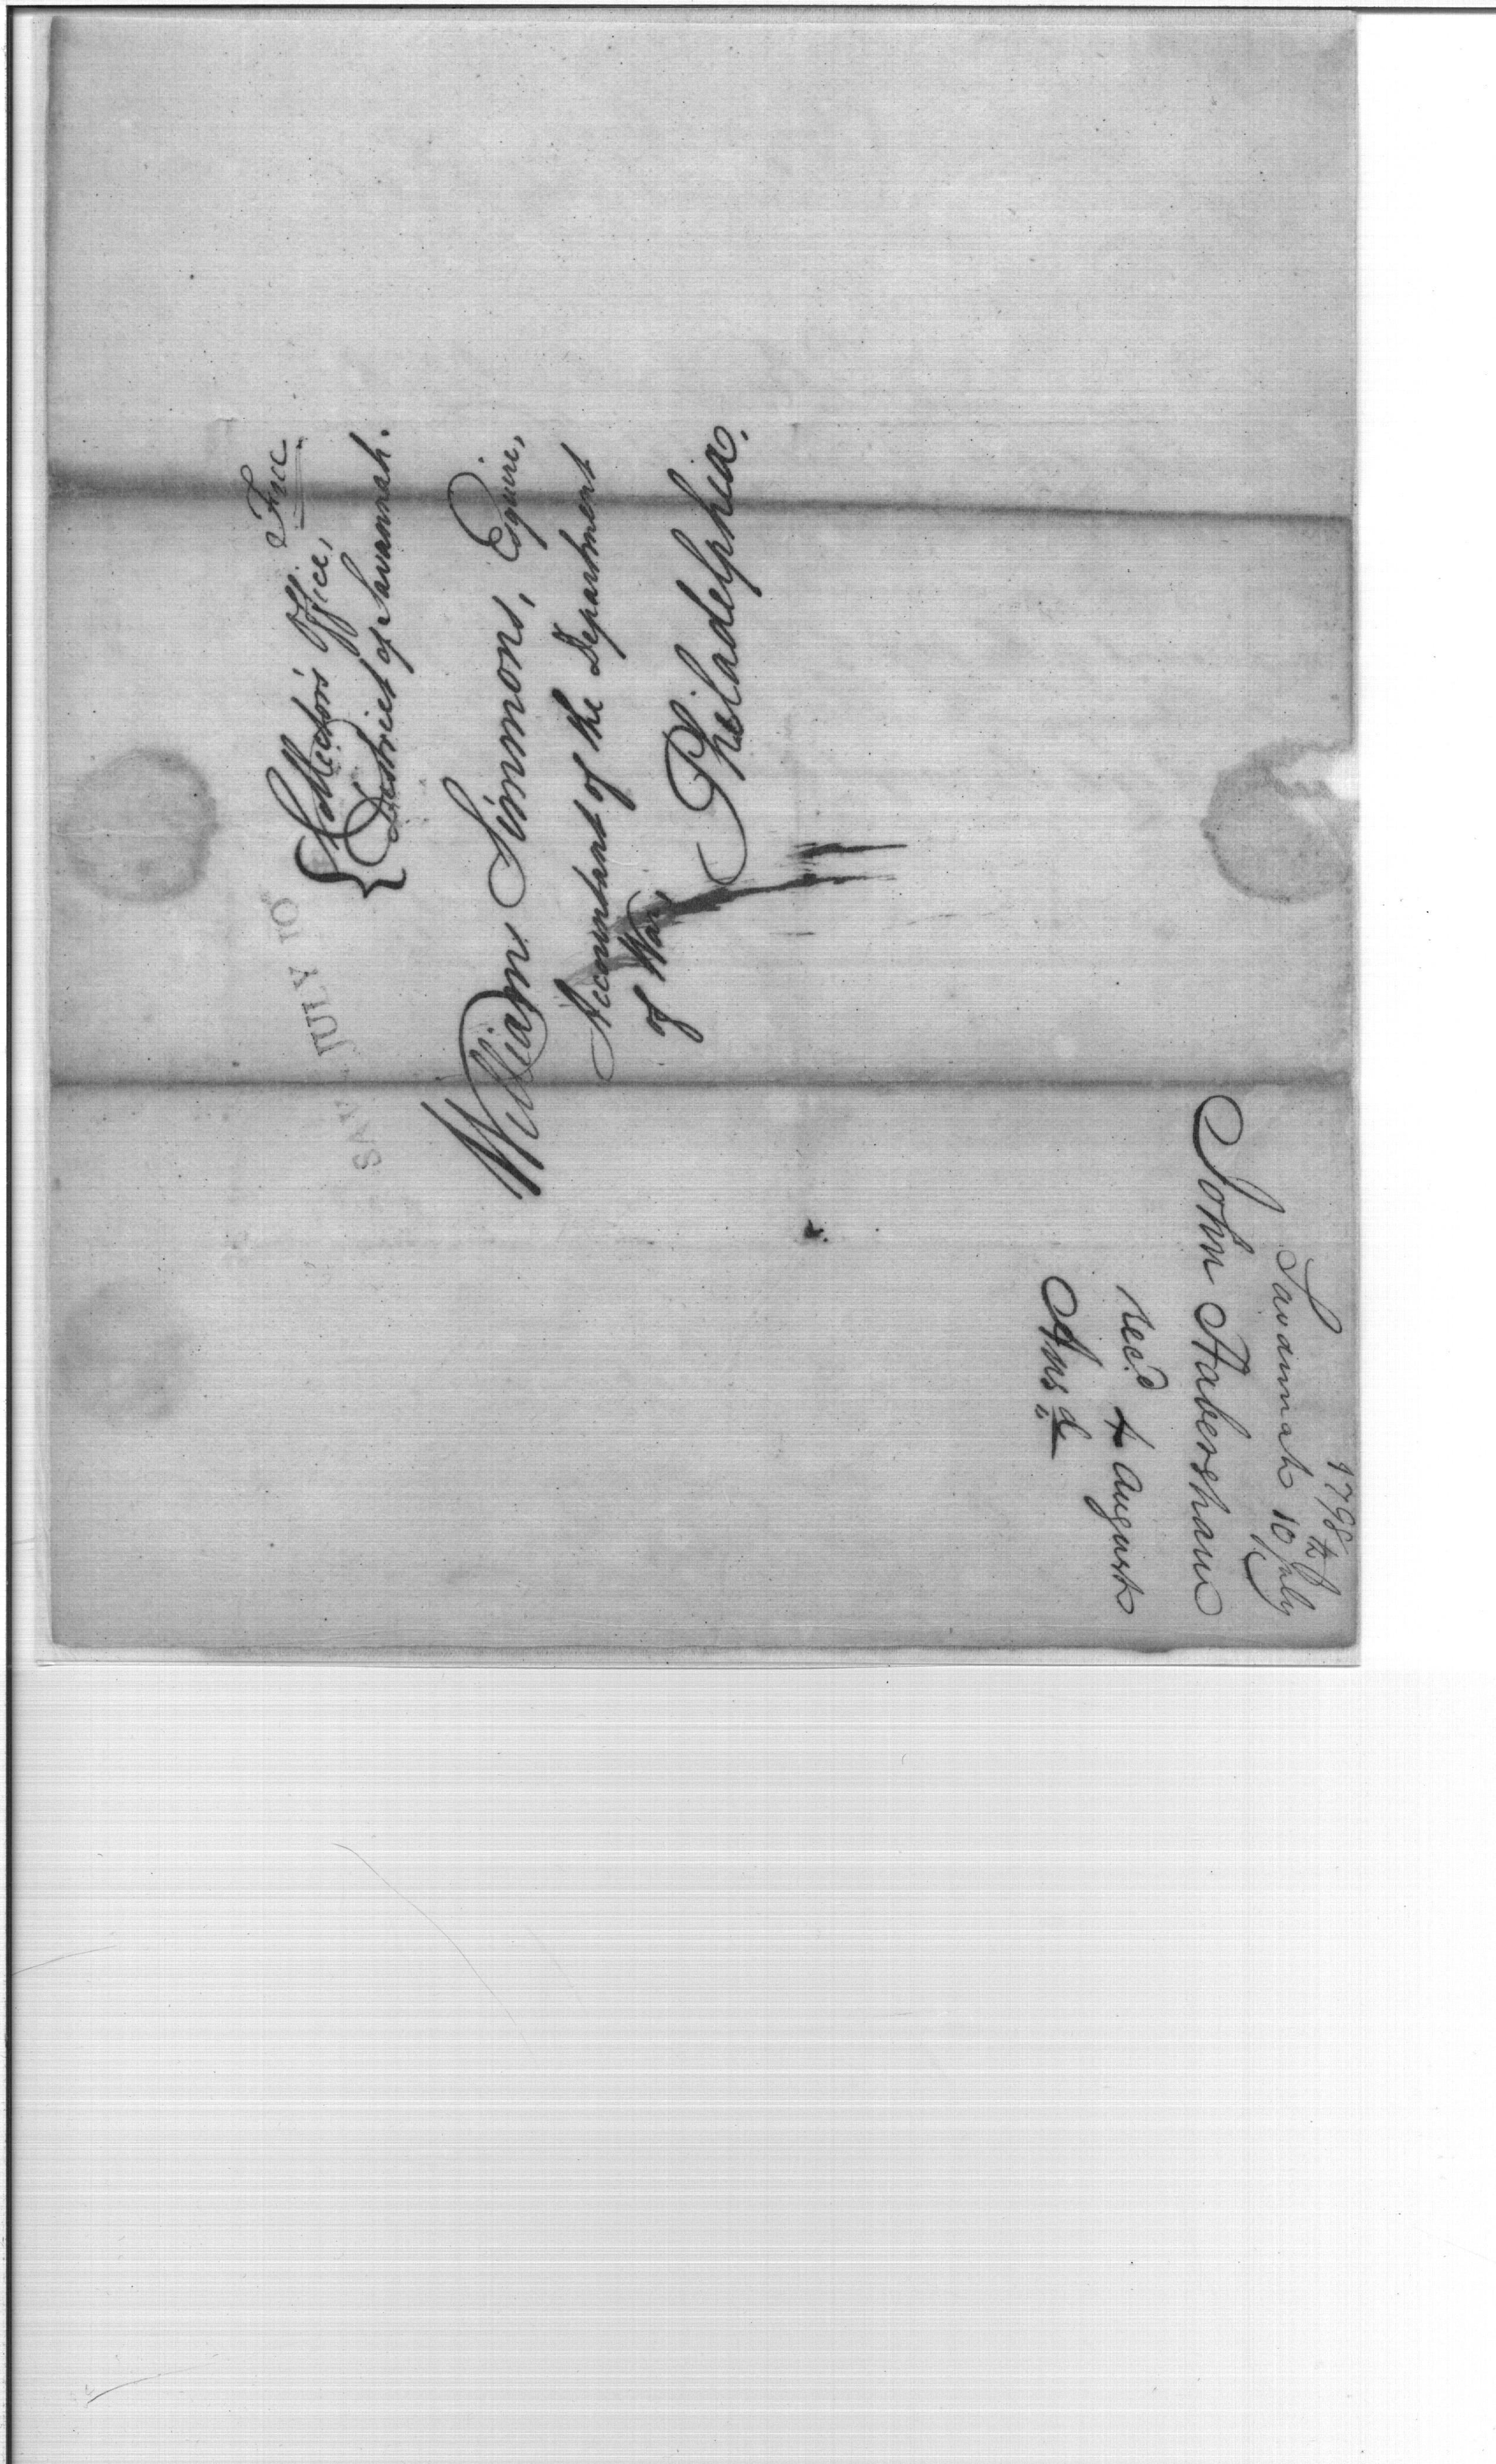 Free
Collector's Office,
District of Savannah.
SAV. JULY 10
William Simmons, Esquire,
Accountant of the Department
of War,
Philadelphia.
1798
Savannah 10th July
John Habersham
Rec.d 4 August
Ans.d